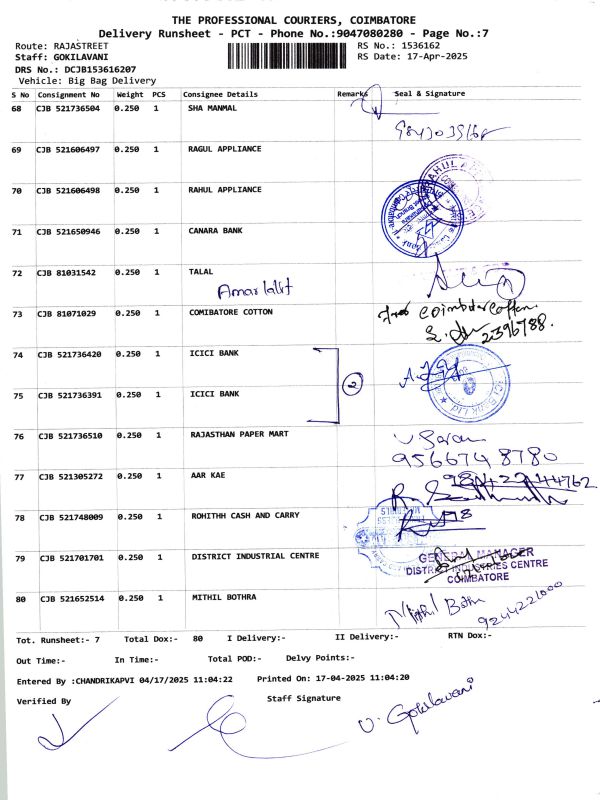 THE PROFESSIONAL COURIERS, COIMBATORE
Delivery Runsheet - PCT - Phone No.:9047080280 - Page No.:7
Route: RAJASTREET RS No.: 1536162
Staff: GOKILAVANI RS Date: 17-Apr-2025
DRS No.: DCJB153616207
Vehicle: Big Bag Delivery
S No Consignment No Weight PCS Consignee Details Remarks Seal & Signature
68 CJB 521736504 0.250 1 SHA MANMAL
69 CJB 521606497 0.250 1 RAGUL APPLIANCE
70 CJB 521606498 0.250 1 RAHUL APPLIANCE
71 CJB 521650946 0.250 1 CANARA BANK
72 CJB 81031542 0.250 1 TALAL
Amar lalit
73 CJB 81071029 0.250 1 COMIBATORE COTTON
coimbatore cotton.
2396788.
74 CJB 521736420 0.250 1 ICICI BANK
2
75 CJB 521736391 0.250 1 ICICI BANK
ICICI Bank Ltd
76 CJB 521736510 0.250 1 RAJASTHAN PAPER MART
9566748780
77 CJB 521305272 0.250 1 AAR KAE
78 CJB 521748009 0.250 1 ROHITHH CASH AND CARRY
79 CJB 521701701 0.250 1 DISTRICT INDUSTRIAL CENTRE
GENERAL MANAGER
DISTRICT INDUSTRIES CENTRE
COIMBATORE
80 CJB 521652514 0.250 1 MITHIL BOTHRA
Mithil Bothra
9244221000
Tot. Runsheet:- 7 Total Dox:- 80 I Delivery:- II Delivery:- RTN Dox:-
Out Time:- In Time:- Total POD:- Delvy Points:-
Entered By :CHANDRIKAPVI 04/17/2025 11:04:22 Printed On: 17-04-2025 11:04:20
Verified By Staff Signature
V. Gokilavani